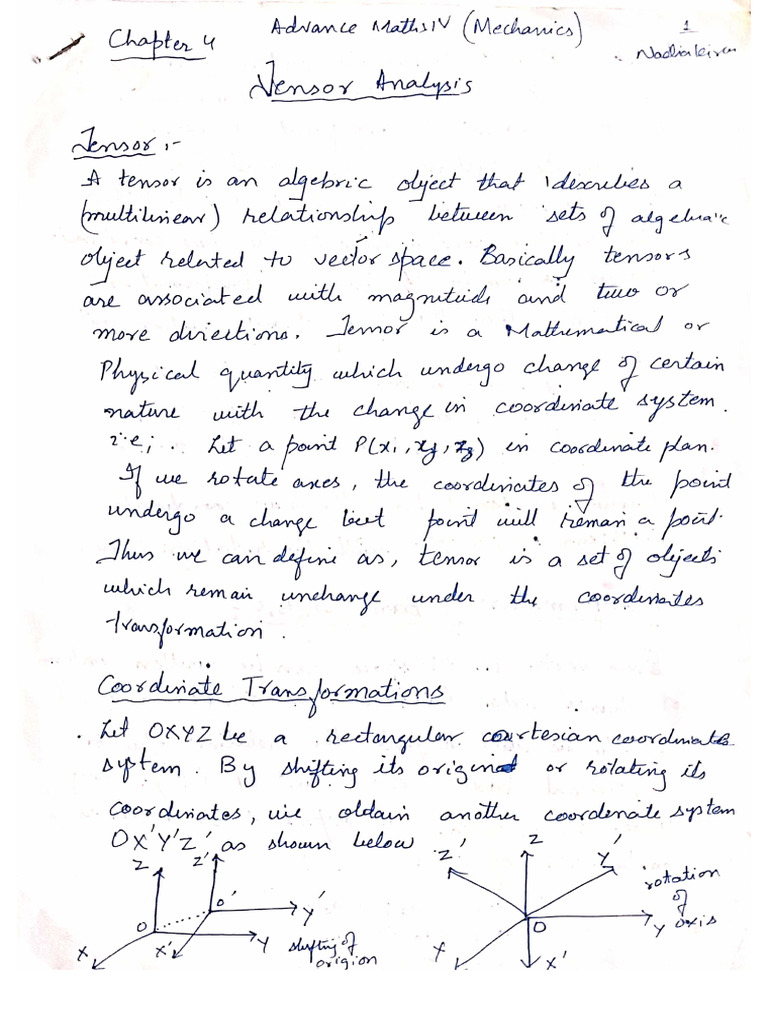 Chapter 4
Advance Maths IV (Mechanics)
1
Tensor Analysis
Tensor :-
A tensor is an algebric object that describes a
(multilinear) relationship between sets of algebraic
object related to vector space. Basically tensors
are associated with magnitude and two or
more directions. Tensor is a Mathematical or
Physical quantity which undergo change of certain
nature with the change in coordinate system.
i.e; . Let a point P(x1, x2, x3) in coordinate plan.
If we rotate axes, the coordinates of the point
undergo a change but point will remain a point.
Thus we can define as, tensor is a set of objects
which remain unchange under the coordinates
transformation.
Coordinate Transformations
. Let OXYZ be a rectangular courtesian coordinate
system. By shifting its origin or rotating its
coordinates, we obtain another coordenate system
OX'Y'Z', as shown below.
Z
Z'
O
O'
Y'
Y
X
X'
shifting of
origion
Z'
Z
Y'
O
Y
X
X'
rotation
of
axis